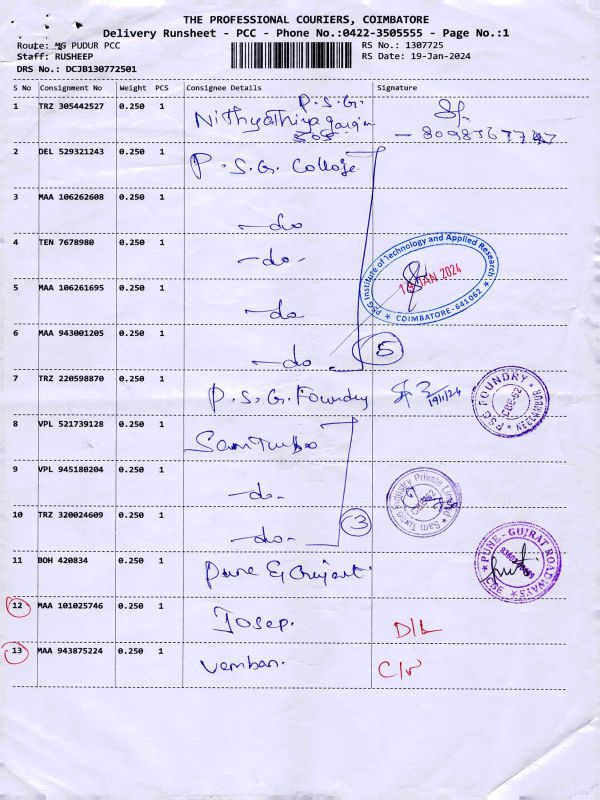 THE PROFESSIONAL COURIERS, COIMBATORE
Delivery Runsheet - PCC - Phone No.:0422-3505555 - Page No.:1
Route: MG PUDUR PCC
RS No.: 1307725
Staff: RUSHEEP
RS Date: 19-Jan-2024
DRS No.: DCJB130772501
S No Consignment No Weight PCS Consignee Details Signature
1 TRZ 305442527 0.250 1 P.S.G.
Nithyathiyagarajan
2 DEL 529321243 0.250 1 P.S.G. College
3 MAA 106262608 0.250 1 -do
4 TEN 7678980 0.250 1 -do-
5 MAA 106261695 0.250 1 -do
PSG Institute of Technology and Applied Research
JAN 2024
* COIMBATORE-641 062 *
6 MAA 943001205 0.250 1 -do.
5
7 TRZ 220598870 0.250 1 P.S.G. Foundry
19/1/24
* PSG FOUNDRY *
8 VPL 521739128 0.250 1 Sam Turbo
9 VPL 945180204 0.250 1 -do-
* Sam Turbo Industry Private Limited
10 TRZ 320024609 0.250 1 -do-
3
11 BOH 420834 0.250 1 Pune Gujarat
* PUNE-GUJRAT ROADWAYS *
CBE
12 MAA 101025746 0.250 1 Josep. D/L
13 MAA 943875224 0.250 1 Vemban.